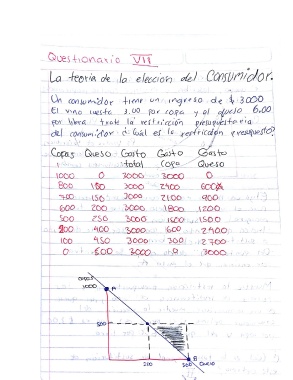 Questionario VII
La teoría de la elección del Consumidor.
Un consumidor tiene un ingreso de $ 3000
El vino cuesta 3.00 por copa y el queso 6.00
por libra trate la restricción presupuestaria
del consumidor ¿Cuál es la restricción presupuesto?
Copas Queso Gasto Gasto Gasto
total Copa Queso
1000 0 3000 3000 0
800 100 3000 2400 600
700 150 3000 2100 900
600 200 3000 1800 1200
500 250 3000 1500 1500
200 400 3000 600 2400
100 450 3000 300 2700
0 500 3000 0 3000
copas
1000 A
500
250 500 B Queso